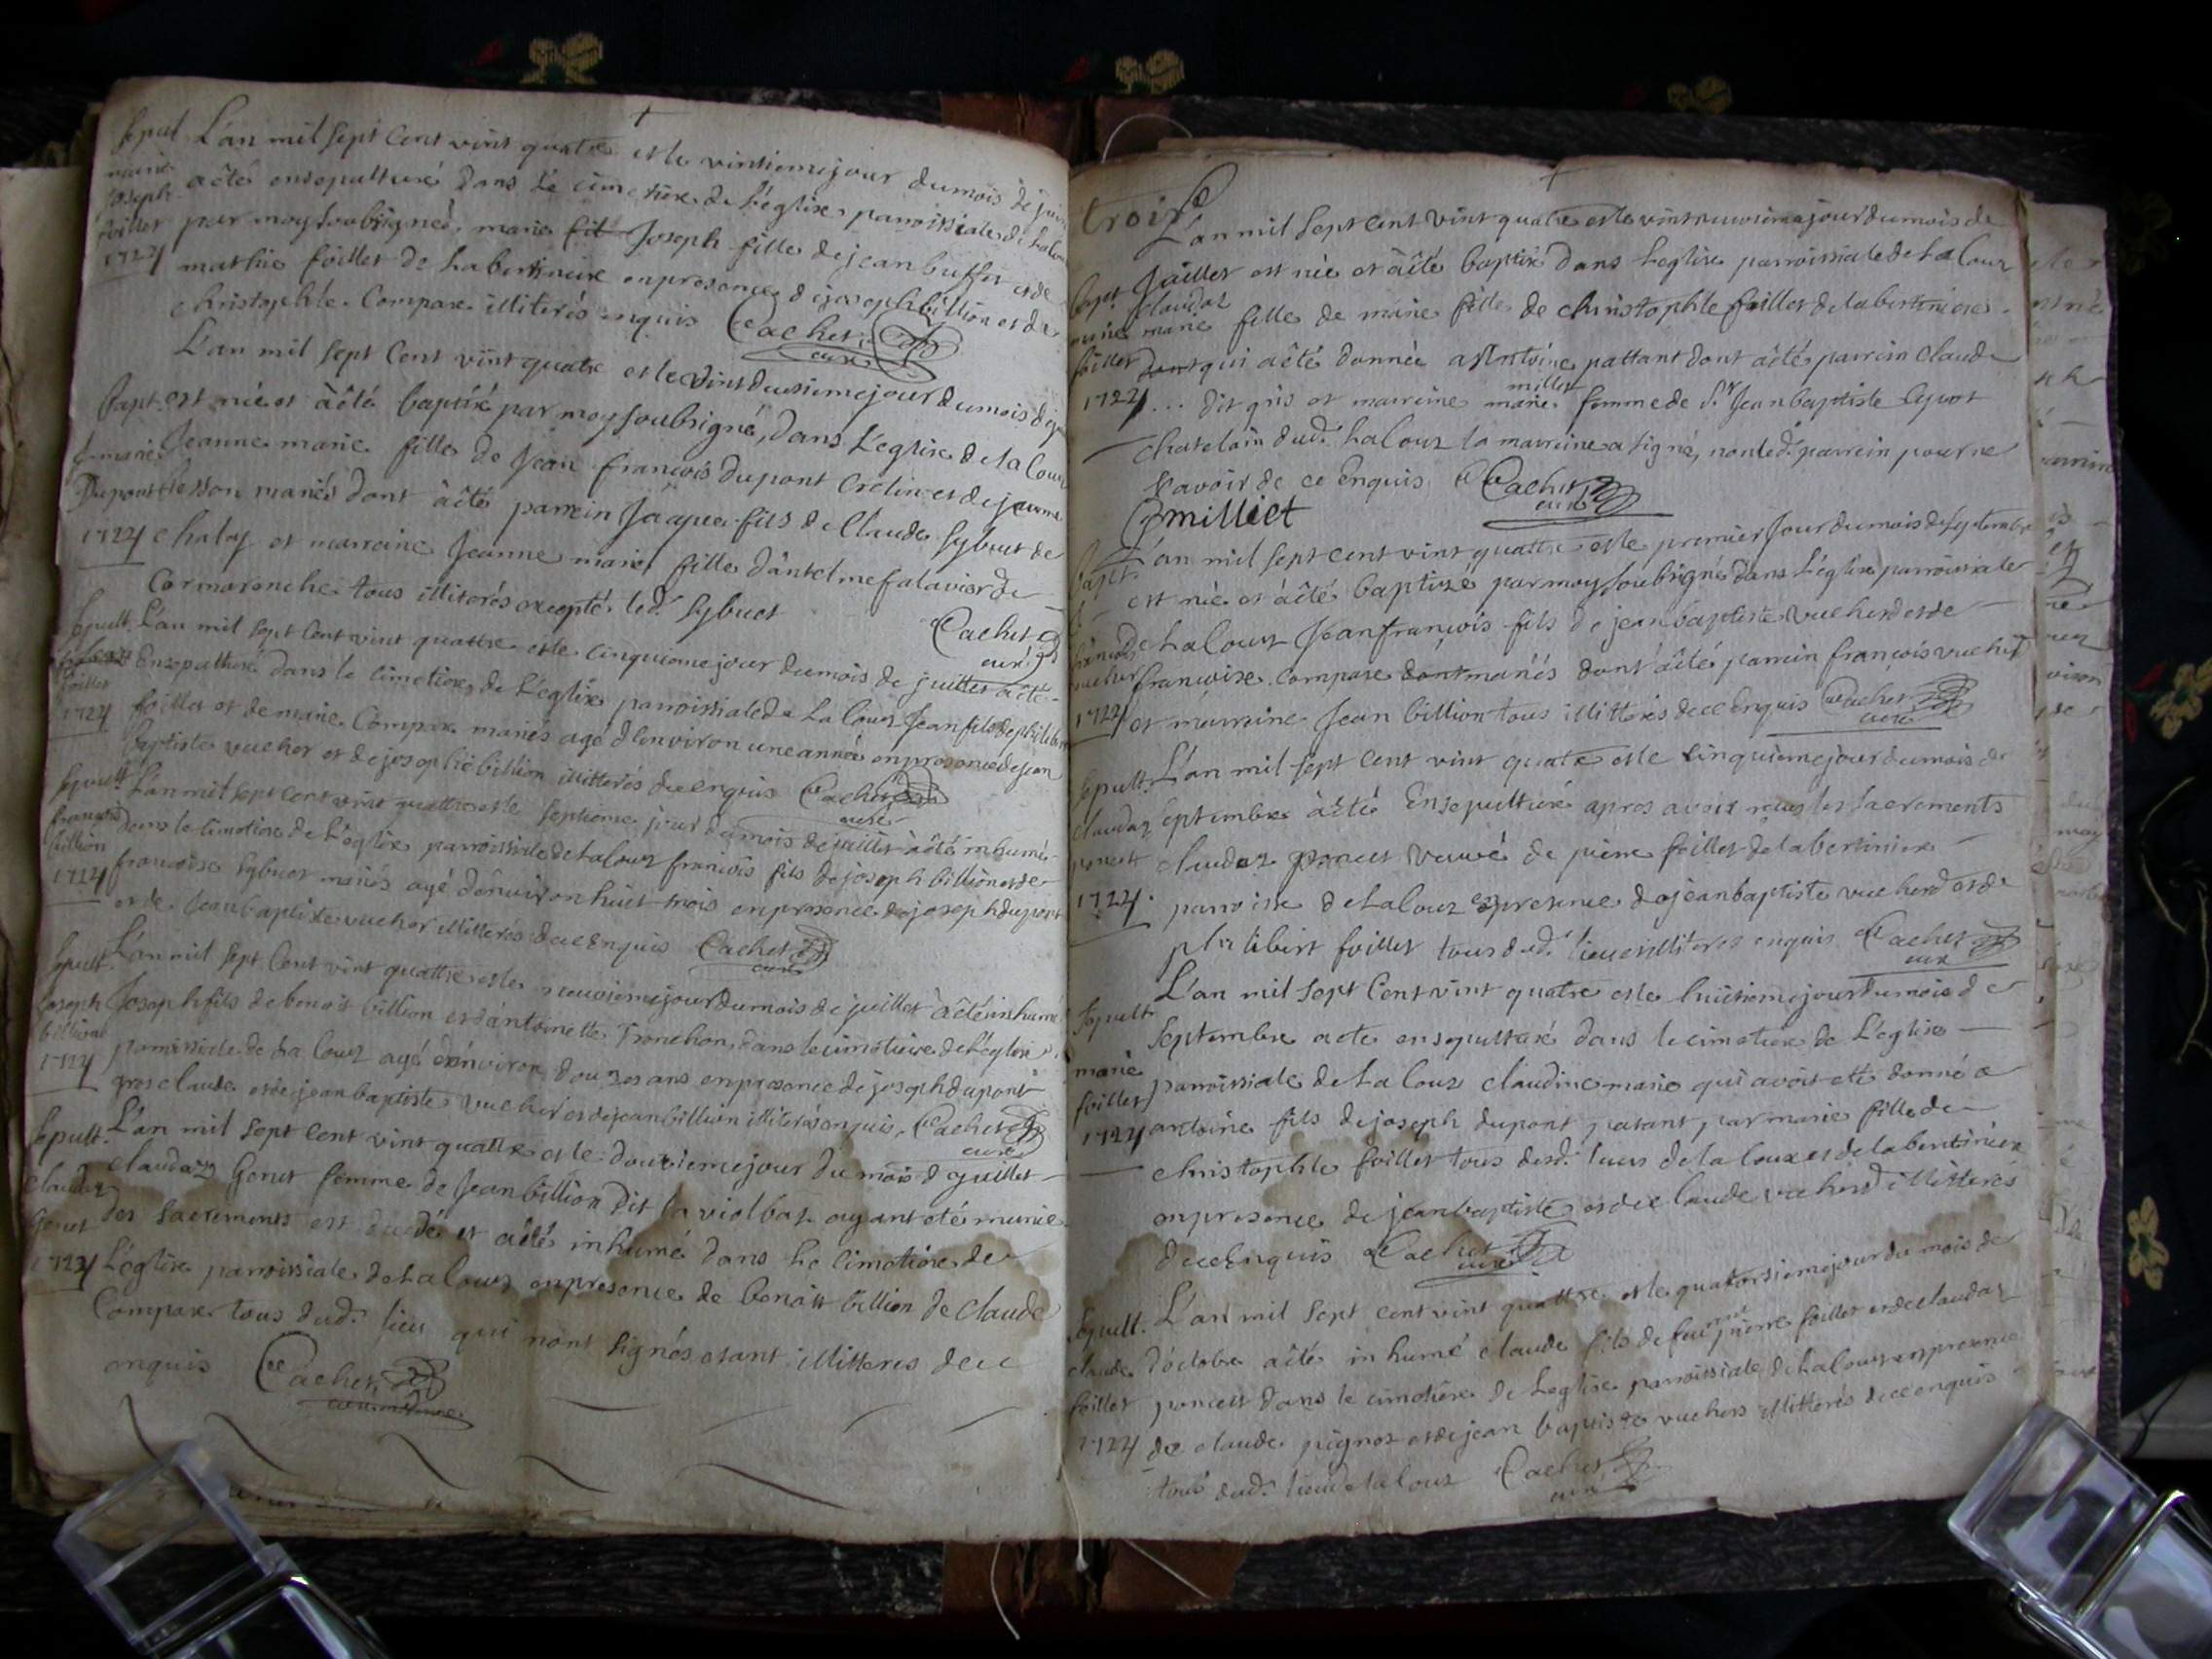 Sepul L'an mil sept cent vint quatre et le vintiemejour dumois de juin
marie
Joseph
foillet
1724
aété ensepulturé dans Le cimetiere de L'eglise parroissiale de
par moy soubsigneé, marie fit Joseph fille dejean buffet et de
mathie foillet de Labertiniere enpresence dejoseph billion et de
christophle Compare illiterés enquis Cachet
curé
L'an mil sept Cent vint quatre et le vintdeusiemejour dumois de
Bapt. est née et àété baptisé par moy soubsigné, dans L'eglise de la Couz
j. marie Jeanne marie fille de Jean françois dupont Crélin et de jeanne
Dupont tesson mariés dont àété parrein Jaque fils de Claude Sybuet de
1724 chaley et marraine Jeanne marie fille d'antelme falavier de
Cormaranche tous illiterés excepté led. Sybuet
Cachet
curé
Sepult. L'an mil sept cent vint quattre et le cinquiemejour dumois de juillet àété
foillet
1724
Ensepulturé dans le cimetiere de L'eglise parroissialede La Couz Jean fils dephilibert
foillet et de marie Compare mariés agé d'environ une année enpresence dejean
baptiste vucher et dejosephe billion illitterés decenquis Cachet
curé
Sepult L'an mil sept cent vint quattre et le septieme jour dumois de juillet àété inhumé
françois
billion
1724
dans le cimetiere de L'eglise parroissiale delaLouz françois fils dejoseph billion et de
francoise Sybuet mariés agé d'environ huict mois enpresence dejoseph dupont
et de jeanbaptiste vucher illitterés decenquis Cachet
curé
Sepult. L'an mil sept Cent vint quattre et le neuviemejour dumois de juillet àété inhumé
Joseph
billion
1724
Joseph fils debenoit billion et d'antoinette Tronchon, dans lecimetiere de L'eglise
parroissiale de La Louz agé d'environ douzes ans enpresence dejoseph dupont
gros claude et dejeanbaptiste vucher et dejean billion illiterés enquis, Cachet
curé
Sepult. L'an mil sept cent vint quattre et le douziemejour du mois d juillet
claudaz
Genet
1724
claudaz Genet femme de Jean billion dit la violbaz ayant eté munie
des sacrements est decedé et àété inhumé dans Le cimetiere de
L'église parroissiale delaLouz enpresence de benoit billion de claude
Compare tous dud. lieu qui nont signés etant illitteres dece
enquis Cachet
troise
L'an mil sept cent vint quatre et le vintneuviemejour dumois de
Bapt. Juillet est née et àété baptisé dans Leglise parroissiale de La Louz
claudaz
marie marie fille de marie fille de christophle foillet delabertiniere
foillet dont qui àété donnée a Antoine pattant dont àété parrein claude
1724 ... dit gris et marreine marie millet femme de Sr. Jeanbaptiste Guyot
chatelain dud. La Louz la marreine a signé, non led. parrein pour ne
savoir de ce Enquis Cachet
curé
milliet
L'an mil sept cent vint quattre et le premier Jour dumois de septembre
Bapt. est née et àété baptizé par moy soubsigné dans L'église parroissiale
françois
vucher
1724
de La Louz Jeanfrançois fils de jeanbaptiste vucherd et de
francoise Compare dont mariés dont àété parrein françois vucher
et marraine Jean billion tous illitterés dece Enquis Cachet
curé
Sepult. L'an mil sept Cent vint quatre et le cinquiemejour dumois de
claudaz
poncet
1724.
septembre àété Ensepulturé apres avoir reçus les sacrements
claudaz poncet veuve de pierre foillet delabertiniere
parroisse delaLouz enpresence dejeanbaptiste vucherd et de
philibert foillet tous dud. lieu et illiteres enquis Cachet
curé
L'an mil sept Cent vint quatre et le huitiemejour dumois de
Sepult septembre aeté ensepulturé dans le cimetiere de L'église
marie
foillet
1724
parroissiale de La Louz claudine marie qui avoit eté donné a
antoine fils dejoseph dupont patant, par marie fille de
christophle foillet tous desd. lieus de la Louz et de labertiniere
enpresence de jeanbaptiste et de claude vucherd illitterés
deceEnquis Cachet
curé
Sepult. L'an mil sept cent vint quattre et le quatorsiemejour du mois de
claude
foillet
1724
d'octobre àété inhumé claude fils de feu pierre foillet et de claudaz
poncet dans le cimetiere de Leglise parroissiale de La Louz enpresence
de claude pignoz et dejean baptiste vuchers illitterés decenquis
tous dud. lieu de la Louz Cachet
curé